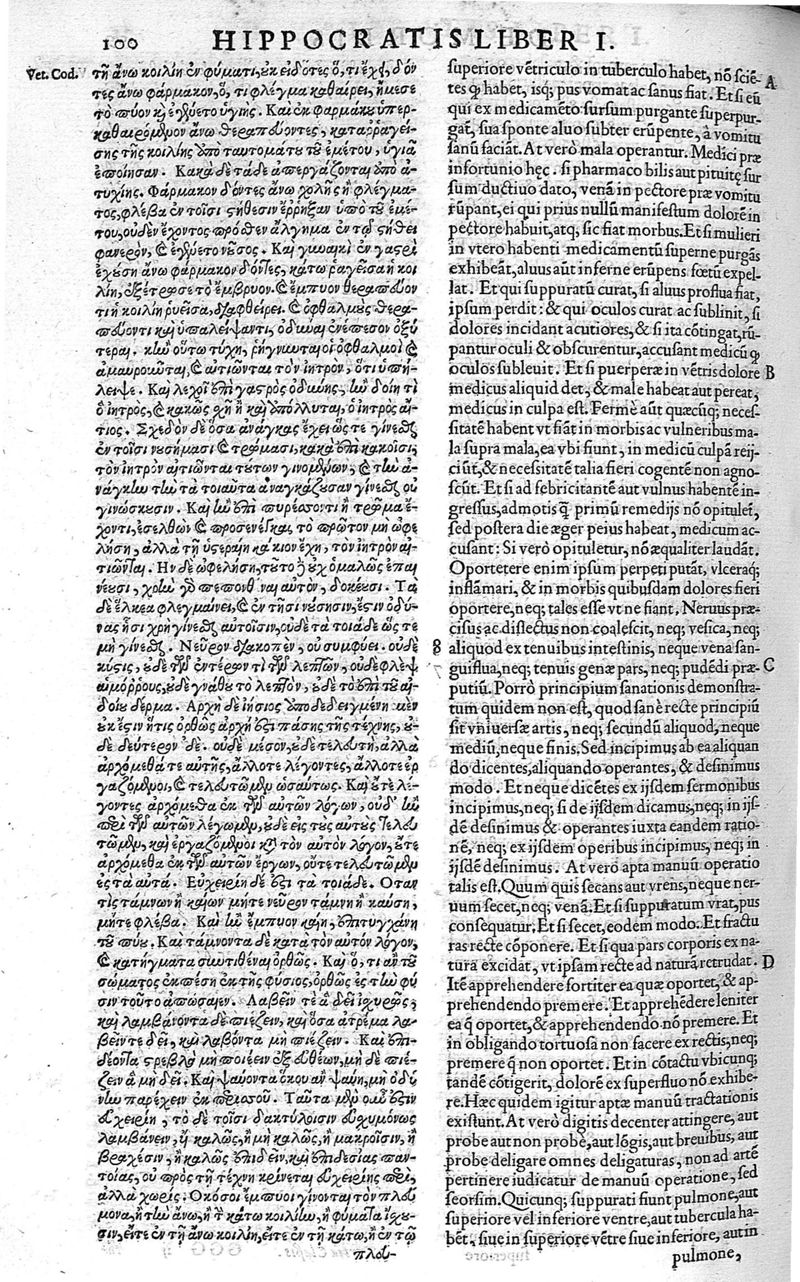 100 HIPPOCRATIS LIBER I.
Vet. Cod.
τῇ ἄνω κοιλίη ἐν φύματι, οὐκ εἰδότες ὅ, τι ἔχει, δόν
τες ἄνω φάρμακον, ὅ, τι φλέγμα καθαίρει, ἤμεσε
τὸ πῦον καὶ ἐγένετο ὑγιής. Καὶ ἐκ φαρμάκου ὑπερ-
καθαιρόμενον ἄνω θεραπεύοντες, καταῤῥαγεί-
σης τῆς κοιλίης ὑπὸ ταυτομάτου τοῦ ἐμέτου, ὑγιᾶ
ἐποίησαν. Κακὰ δὲ τάδε ἀπεργάζονται ὑπὸ ἀ-
τυχίης. Φάρμακον δόντες ἄνω χολῆς ἢ φλέγμα-
τος, φλέβα ἐν τοῖσι στήθεσιν ἔῤῥηξαν ὑπὸ τοῦ ἐμέ-
του, οὐδὲν ἔχοντος πρόσθεν ἄλγημα ἐν τῷ στήθει
φανερὸν, καὶ ἐγένετο νοῦσος. Καὶ γυναικὶ ἐν γαστρὶ
ἐχούσῃ ἄνω φάρμακον δόντες, κάτω ῥαγεῖσα ἡ κοι
λίη, ἐξέτρωσε τὸ ἔμβρυον. καὶ ἔμπυον θεραπεύον
τι ἡ κοιλίη ῥυεῖσα, διαφθείρει. καὶ ὀφθαλμοὺς θερα-
πεύοντι καὶ ὑπαλείψαντι, ὀδύναι ἐνέπεσον ὀξύ
τεραι. κἢν οὕτω τύχῃ, ῥήγνυνται οἱ ὀφθαλμοὶ καὶ
ἀμαυροῦνται, καὶ αἰτιῶνται τὸν ἰητρὸν, ὅτι ὑπή-
λειψε. Καὶ λεχοῖ ἐπὶ γαστρὸς ὀδύνης, ἢν δοίη τι
ὁ ἰητρὸς, καὶ κακῶς σχῇ ἢ καὶ ἀπόλλυται, ὁ ἰητρὸς αἴ-
τιος. Σχεδὸν δὲ ὅσα ἀνάγκας ἔχει ὥστε γίνεσθαι
ἐν τοῖσι νουσήμασι καὶ τρώμασι, κακὰ ἐπὶ κακοῖσι,
τὸν ἰητρὸν αἰτιῶνται τούτων γινομένων, καὶ τὴν ἀ-
νάγκην τὴν τὰ τοιαῦτα ἀναγκάζουσαν γίνεσθαι οὐ
γινώσκουσιν. Καὶ ἢν ἐπὶ πυρέσσοντι ἢ τρῶμα ἔ-
χοντι, ἐσελθὼν καὶ προσενέγκας, τὸ πρῶτον μὴ ὠφε
λήσῃ, ἀλλὰ τῇ ὑστεραίῃ κάκιον ἔχῃ, τὸν ἰητρὸν αἰ-
τιῶνται. Ἢν δὲ ὠφελήσῃ, τοῦτο οὐχ ὁμαλῶς ἐπαι
νέουσι, χρῆν γὰρ πεπονθέναι αὐτὸν, δοκέουσι. Τὰ
δὲ ἕλκεα φλεγμαίνει, καὶ ἐν τῇσι νούσησιν, ἔστιν ὀδύ-
νας ᾗσι χρὴ γίνεσθαι αὐτοῖσιν, οὐδὲ τὰ τοιάδε ὥς τε
μὴ γίνεσθαι. Νεῦρον διακοπὲν, οὐ συμφύει. οὐδὲ
κύστις, οὐδὲ τῶν ἐντέρων τι τῶν λεπτῶν, οὐδὲ φλὲψ
αἱμόῤῥους, οὐδὲ γνάθου τὸ λεπτὸν, οὐδὲ τὸ ἐπὶ τῷ αἰ-
δοίῳ δέρμα. Ἀρχὴ δὲ ἰήσιος ἀποδεδειγμένη μὲν
οὐκ ἔστιν ἥτις ὀρθῶς ἀρχή ἐστι πάσης τῆς τέχνης, οὐ
δὲ δεύτερον δὲ. οὐδὲ μέσον, οὐδὲ τελευτὴ, ἀλλὰ
ἀρχόμεθά τε αὐτῆς, ἄλλοτε λέγοντες, ἄλλοτε ἐρ
γαζόμενοι, καὶ τελευτῶμεν ὡσαύτως. Καὶ οὔτε λέ-
γοντες ἀρχόμεθα ἐκ τῶν αὐτῶν λόγων, οὐδ' ἢν
περὶ τῶν αὐτῶν λέγωμεν, οὐδὲ εἰς τοὺς αὐτοὺς τελευ
τῶμεν, καὶ ἐργαζόμενοι κατὰ τὸν αὐτὸν λόγον, οὔτε
ἀρχόμεθα ἐκ τῶν αὐτῶν ἔργων, οὔτε τελευτῶμεν
ἐς τὰ αὐτά. Εὐχειρίη δέ ἐστι τὰ τοιάδε. Ὅταν
τὶς τάμνων ἢ καίων μήτε νεῦρον τάμνῃ ἢ καύσῃ,
μήτε φλέβα. Καὶ ἢν ἔμπυον καίῃ, ἐπιτυγχάνῃ
τοῦ πύου. Καὶ τάμνοντα δὲ κατὰ τὸν αὐτὸν λόγον,
καὶ κατήγματα συντιθέναι ὀρθῶς. Καὶ ὅ, τι ἂν τοῦ
σώματος ἐκπέσῃ ἐκ τῆς φύσιος, ὀρθῶς ἐς τὴν φύ
σιν τοῦτο ἀπῶσαι. Λαβεῖν τε ἃ δεῖ ἰσχυρῶς,
καὶ λαμβάνοντα δὲ πιέζειν, καὶ ὅσα ἀτρέμα λα-
βεῖν τε δεῖ, καὶ λαβόντα μὴ πιέζειν. Καὶ ἐπι-
δέοντα στρεβλὰ μὴ ποιέειν ἐξ εὐθέων, μὴ δὲ πιέ-
ζειν ἃ μὴ δεῖ. Καὶ ψαύοντα ὅκου ἂν ψαύῃ, μὴ ὀδύ
νην παρέχειν ἐκ περισσοῦ. Ταῦτα μὲν οὖν ἐστιν
εὐχειρίη, τὸ δὲ τοῖσι δακτύλοισιν εὐσχημόνως
λαμβάνειν, ἢ καλῶς, ἢ μὴ καλῶς, ἢ μακροῖσιν, ἢ
βραχέσιν, ἢ καλῶς ἐπιδεῖν, καὶ ἐπιδέσιας παν-
τοίας, οὐ πρὸς τῇ τέχνῃ κρίνεται εὐχειρίης πέρι,
ἀλλὰ χωρίς. Ὁκόσοι ἔμπυοι γίνονται τὸν πλεύ
μονα, ἢ τὴν ἄνω, ἢ τὴν κάτω κοιλίην, ἢ φύματα ἴσχου
σιν, εἴτε ἐν τῇ ἄνω κοιλίῃ, εἴτε ἐν τῇ κάτω, ἢ ἐν τῷ
πλεύ-
superiore vẽtriculo in tuberculo habet, nõ sciẽ-
tes ꝙ habet, isq; pus vomat ac sanus fiat. Et si eũ
A
qui ex medicamẽto sursum purgante superpur-
gat̃, sua sponte aluo subter erũpente, à vomitu
sanũ faciãt. At verò mala operantur. Medici præ
infortunio hęc. si pharmaco bilis aut pituitę sur
sum ductiuo dato, venã in pectore præ vomitu
rũpant, ei qui prius nullũ manifestum dolorẽ in
pectore habuit, atq; sic fiat morbus. Et si mulieri
in vtero habenti medicamentũ superne purgãs
exhibeãt, aluus aũt inferne erũpens fœtũ expel-
lat. Et qui suppuratũ curat, si aluus profluа fiat,
ipsum perdit: & qui oculos curat ac sublinit, si
dolores incidant acutiores, & si ita cõtingat, rũ-
pantur oculi & obscurentur, accusant medicũ ꝙ
oculos subleuit. Et si puerperæ in vẽtris dolore
B
medicus aliquid det, & male habeat aut pereat,
medicus in culpa est. Fermè aũt quæcũq; neces-
sitatẽ habent vt fiãt in morbis ac vulneribus ma-
la supra mala, ea vbi fiunt, in medicũ culpã reij-
ciũt, & necessitatẽ talia fieri cogentẽ non agno-
scũt. Et si ad febricitantẽ aut vulnus habentẽ in-
gressus, admotis q̃ primũ remedijs nõ opitulet̃,
sed postera die æger peius habeat, medicum ac-
cusant: Si verò opituletur, nõ æqualiter laudãt.
Oportetere enim ipsum perpeti putãt, vlceraq;
inflãmari, & in morbis quibusdam dolores fieri
oportere, neq; tales esse vt ne fiant. Neruus præ-
cisus ac dissectus non coalescit, neq; vesica, neq;
8 aliquod ex tenuibus intestinis, neque vena san-
guiflua, neq; tenuis genæ pars, neq; pudẽdi præ-
C
putiũ. Porrò principium sanationis demonstra-
tum quidem non est, quod sanè recte principiũ
sit vniuersæ artis, neq; secundũ aliquod, neque
mediũ, neque finis. Sed incipimus ab ea aliquan
do dicentes, aliquando operantes, & desinimus
modo. Et neque dicẽtes ex ijsdem sermonibus
incipimus, neq; si de ijsdem dicamus, neq; in ijs-
dẽ desinimus & operantes iuxta eandem ratio-
nẽ, neq; ex ijsdem operibus incipimus, neq; in
ijsdẽ desinimus. At verò apta manuũ operatio
talis est. Quum quis secans aut vrens, neque ner-
uum secet, neq; venã. Et si suppuratum vrat, pus
consequatur; Et si secet, eodem modo. Et fractu
ras recte cõponere. Et si qua pars corporis ex na-
tura excidat, vt ipsam recte ad naturã retrudat.
D
Itẽ apprehendere fortiter ea quæ oportet, & ap-
prehendendo premere. Et apprehẽdere leniter
ea q̃ oportet, & apprehendendo nõ premere. Et
in obligando tortuosa non facere ex rectis, neq;
premere q̃ non oportet. Et in cõtactu vbicunq;
tandẽ cõtigerit, dolorẽ ex superfluo nõ exhibe-
re. Hæc quidem igitur aptæ manuũ tractationis
existunt. At verò digitis decenter attingere, aut
probe aut non probe, aut lõgis, aut breuibus, aut
probe deligare omnes deligaturas, non ad artẽ
pertinere iudicatur de manuũ operatione, sed
seorsim. Quicunq; suppurati fiunt pulmone, aut
superiore vel inferiore ventre, aut tubercula ha-
bẽt, siue in superiore vẽtre siue inferiore, aut in
pulmone,